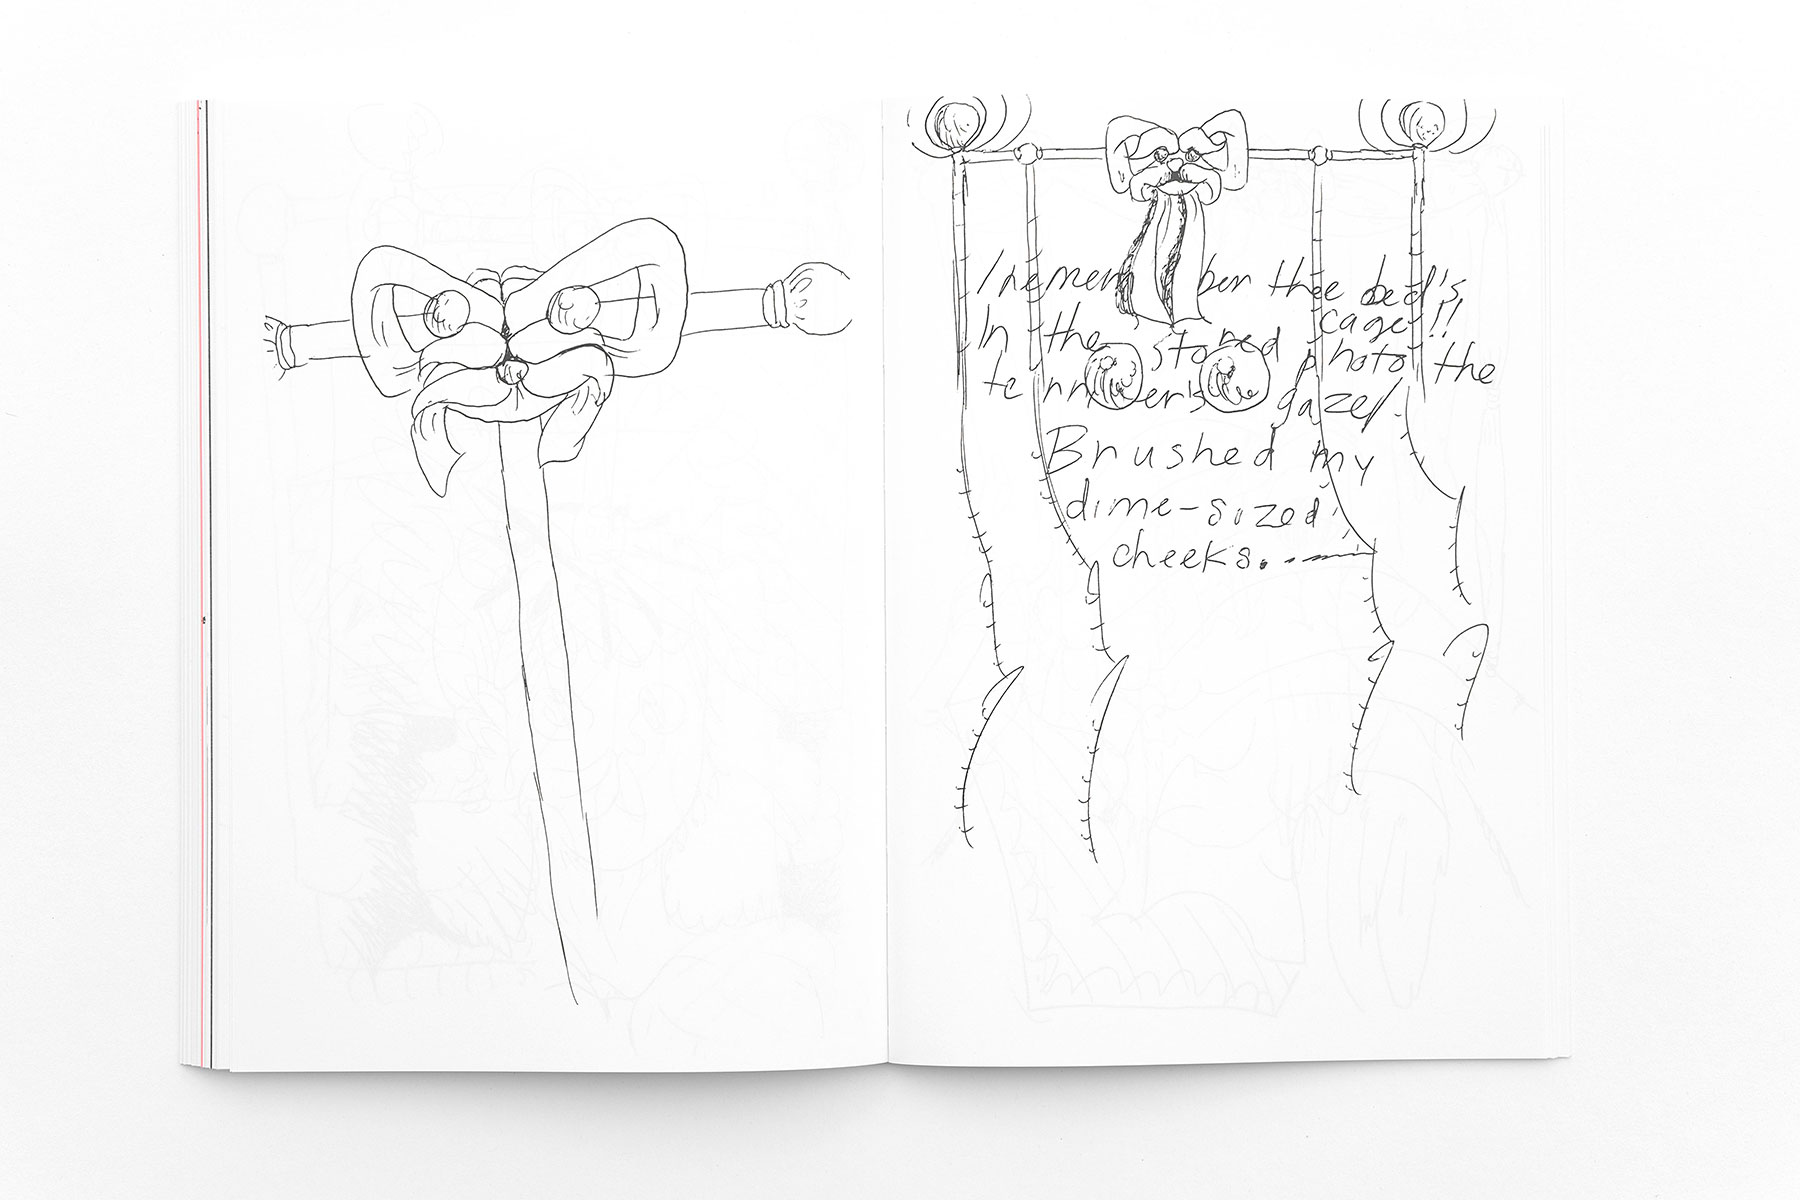 I remember thee bed's
cage!!
In the stored photo the
gaze.
Brushed my
dime-sized
cheeks.